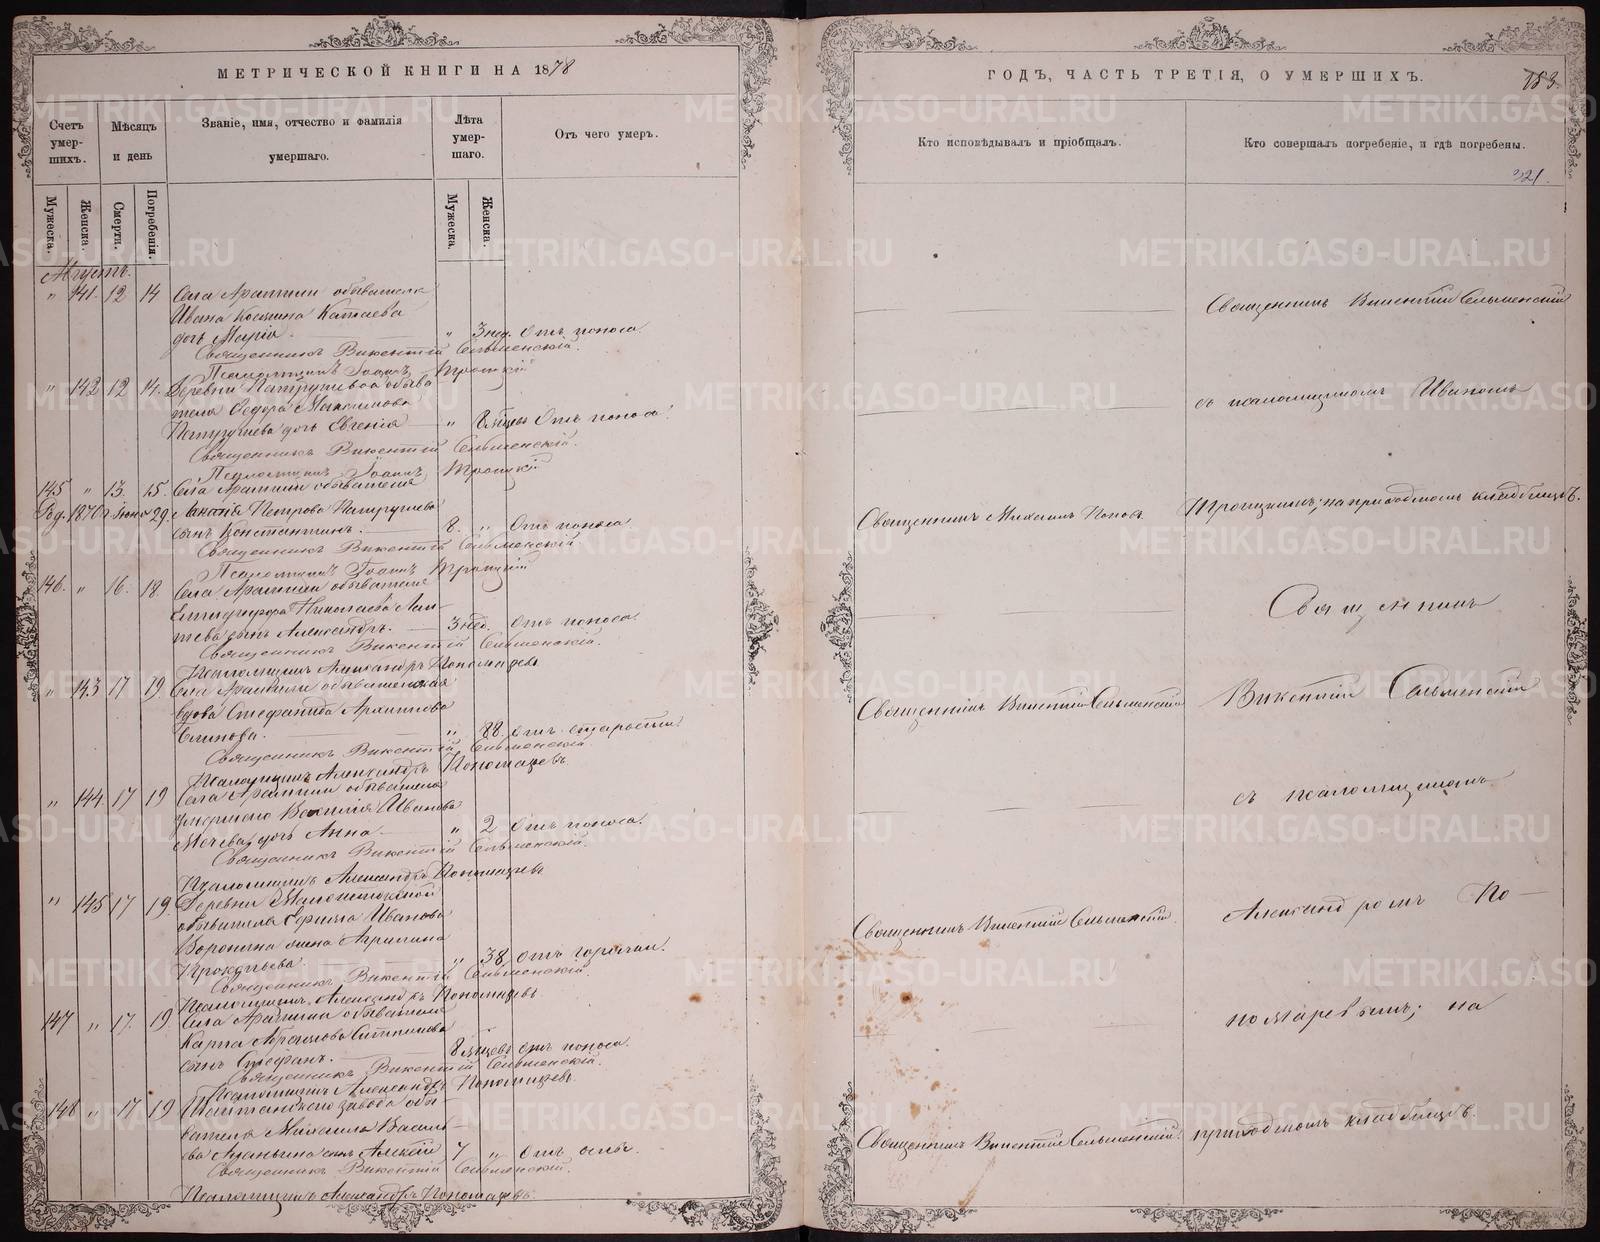 МЕТРИЧЕСКОЙ КНИГИ НА 1878
Счетъ умер- шихъ.
Мѣсяцъ и день
Званіе, имя, отчество и фамилія умершаго.
Лѣта умер- шаго.
Отъ чего умеръ.
Мужеска. Женска. Смерти. Погребенія. Мужеска. Женска.
Августъ.
„ 141. 12 14 Села Арамили обывателя
Ивана Косьмина Катаева
дочь Марія. „ 3 нед. Отъ поноса.
Священникъ Викентій Сельменскій.
Псаломщикъ Іоаннъ Троицкій
„ 142 12 14. Деревни Патрушевой обыва
теля Ѳедора Максимова
Патрушева дочь Евгенія „ 8 мѣсяц Отъ поноса.
Священникъ Викентій Сельменскій.
Псаломщикъ Іоаннъ Троицкій
145 „ 13. 15. Села Арамили обывателя
Род. 1870 г. Іюня 29. Ананія Петрова Патрушева
сынъ Константинъ. 8. „ Отъ поноса
Священникъ Викентій Сельменскій
Псаломщикъ Іоаннъ Троицкій
146. „ 16. 18. Села Арамили обывателя
Николаева
сынъ Александръ. 3 нед. Отъ поноса.
Священникъ Викентій Сельменскій.
Псаломщикъ Александръ Пономаревъ
„ 143 17 19. Села Арамили обывательская
вдова Стефанида Архипова
Блинова. „ 88. Отъ старости.
Священникъ Викентій Сельменскій.
Псаломщикъ Александръ Пономаревъ.
„ 144. 17 19 Села Арамили обывателя
умершаго Василія Иванова
дочь Анна. „ 2 Отъ поноса.
Священникъ Викентій Сельменскій.
Псаломщикъ Александръ Пономаревъ
„ 145 17 19. Деревни
обывателя Иванова
Воронина жена Агрипина
Прокопьева „ 38. Отъ горячки.
Священникъ Викентій Сельменскій.
Псаломщикъ Александръ Пономаревъ
147 „ 17. 19. Села Арамили обывателя
Карпа Абрамова
сынъ Стефанъ. 8 мѣсцевъ Отъ поноса.
Священникъ Викентій Сельменскій.
Псаломщикъ Александръ Пономаревъ.
148 „ 17. 19 Шайтанскаго завода обы
вателя Михаила Василь-
ева сынъ Алексій 7 „ Отъ оспы.
Священникъ Викентій Сельменскій.
Псаломщикъ Александръ Пономаревъ.
ГОДЪ, ЧАСТЬ ТРЕТІЯ, О УМЕРШИХЪ. 153.
Кто исповѣдывалъ и пріобщалъ.
Кто совершалъ погребеніе, и гдѣ погребены.
321.
Священникъ Викентій Сельменскій
съ псаломщикомъ Иваномъ
Священникъ Михаилъ Поповъ.
Троицкимъ; на приходскомъ кладбищѣ.
Священникъ
Священникъ Викентій Сельменскій
Викентій Сельменскій
съ псаломщикомъ
Священникъ Викентій Сельменскій.
Александромъ По-
номаревымъ; на
Священникъ Викентій Сельменскій.
приходскомъ кладбищѣ.
METRIKI.GASO-URAL.RU